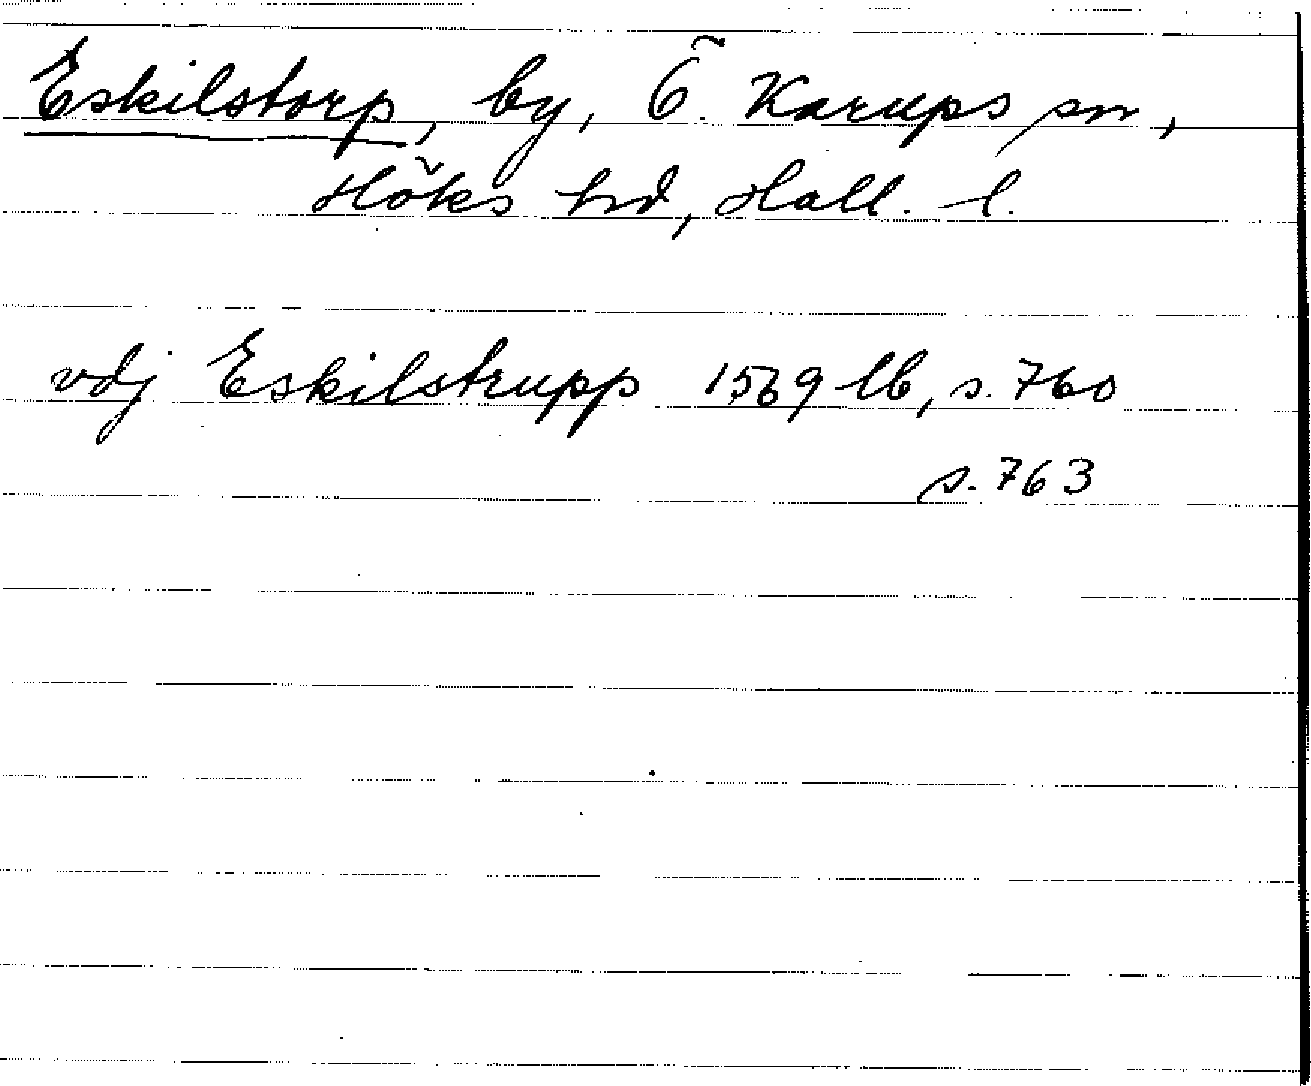 Eskilstorp, by, Ö. Karups sn,
Höks hd, Hall. l.
vdj Eskilstrupp 1569 lb, s. 760
s. 763